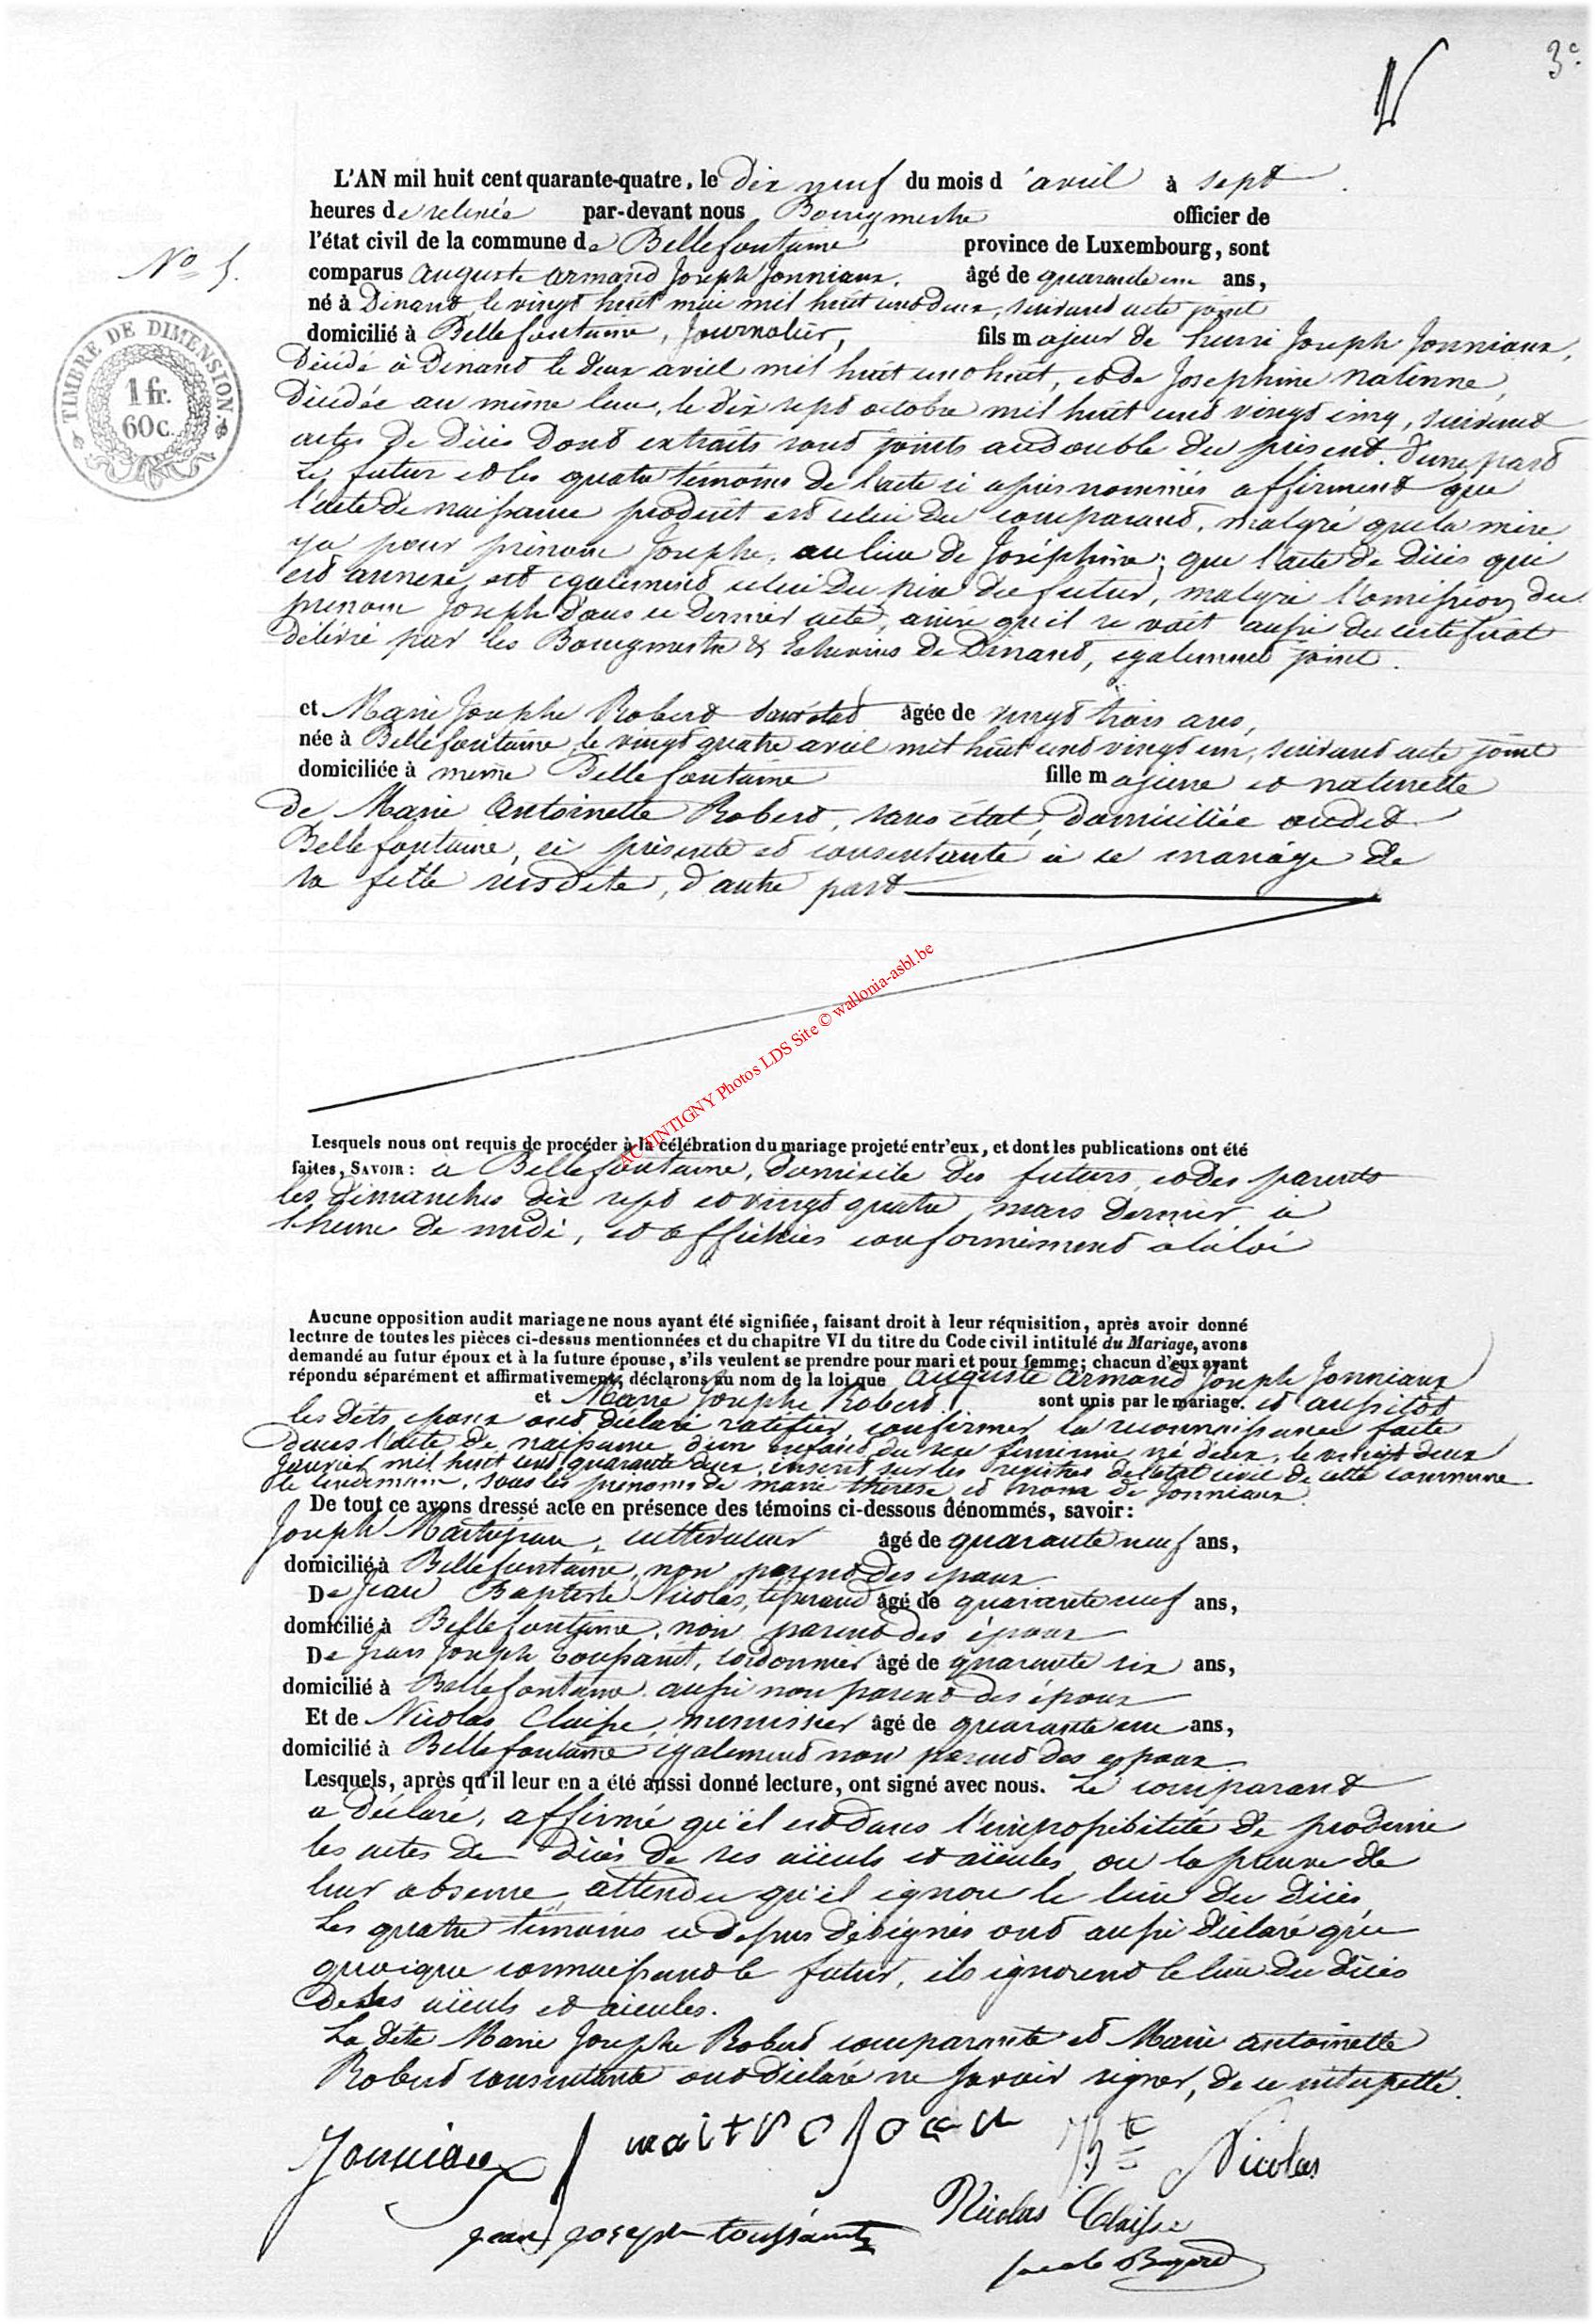 3e
N° 5.
TIMBRE DE DIMENSION.
1 fr.
60 c.
L'AN mil huit cent quarante-quatre, le dix neuf du mois d'avril à sept
heures de relevée par-devant nous Bourgmestre officier de
l'état civil de la commune de Bellefontaine province de Luxembourg, sont
comparus Auguste Armand Joseph Jonniaux, âgé de quarante un ans,
né à Dinant, le vingt huit mai mil huit cent deux, suivant acte joint
domicilié à Bellefontaine, Journalier, fils majeur de henri Joseph Jonniaux,
Décédé à Dinant le deux avril mil huit cent huit, et de Josephine Nalinne,
Décédée au même lieu, le dix sept octobre mil huit cent vingt cinq, suivant
actes de Décès dont extraits sont joints au double du présent. d'une part
Le futur et les quatre témoins de l'acte ci après nommés affirment que
l'acte de naissance produit est celui du comparant, malgré que la mère
y a pour prénom Josephe, au lieu de Joséphine; que l'acte de Décès qui
est annexé, est également celui du père du futur, malgré l'omission du
prénom Joseph dans ce dernier acte, ainsi qu'il se voit aussi du certificat
délivré par les Bourgmestre & Echevins de Dinant, également joint.
et Marie Josephe Robert sans état âgée de vingt trois ans,
née à Bellefontaine, le vingt quatre avril mil huit cent vingt un, suivant acte joint
domiciliée à même Bellefontaine fille majeure et naturelle
de Marie Antoinette Robert, sans état, domiciliée audit
Bellefontaine, ci présente et consentante à ce mariage de
sa fille susdite, d'autre part
ACTINTIGNY Photos LDS Site © wallonia-asbl.be
Lesquels nous ont requis de procéder à la célébration du mariage projeté entr'eux, et dont les publications ont été
faites, SAVOIR: à Bellefontaine, domicile des futurs et des parents
les dimanches dix sept et vingt quatre mars dernier à
l'heure de midi, et affichées conformément à la loi
Aucune opposition audit mariage ne nous ayant été signifiée, faisant droit à leur réquisition, après avoir donné
lecture de toutes les pièces ci-dessus mentionnées et du chapitre VI du titre du Code civil intitulé du Mariage, avons
demandé au futur époux et à la future épouse, s'ils veulent se prendre pour mari et pour femme; chacun d'eux ayant
répondu séparément et affirmativement, déclarons au nom de la loi que Auguste Armand Joseph Jonniaux
et Marie Josephe Robert sont unis par le mariage. et aussitôt
les Dits époux ont déclaré ratifier, confirmer la reconnaissance faite
dans l'acte de naissance d'un enfant du sexe feminin né d'eux, le vingt deux
Janvier mil huit cent quarante deux, inscrit sur les registres de l'état civil de cette commune
le lendemain, sous les prénoms de marie therese et nom de Jonniaux.
De tout ce avons dressé acte en présence des témoins ci-dessous dénommés, savoir:
Joseph Maitrejean, cultivateur âgé de quarante neuf ans,
domicilié à Bellefontaine, non parent des époux
De Jean Baptiste Nicolas, tisserand âgé de quarante neuf ans,
domicilié à Bellefontaine, non parent des époux
De Jean Joseph Toussaint, cordonnier âgé de quarante six ans,
domicilié à Bellefontaine aussi non parent des époux
Et de Nicolas Claisse, menuisier âgé de quarante un ans,
domicilié à Bellefontaine également non parent des epoux.
Lesquels, après qu'il leur en a été aussi donné lecture, ont signé avec nous. Le comparant
a déclaré, affirmé qu'il est dans l'impossibilité de produire
les actes de Décès de ses aïeuls et aïeules, ou la preuve de
leur absence, attendu qu'il ignore le lieu du Décès
Les quatre témoins ci dessus désignés ont aussi déclaré que
quoique connaissant le futur, ils ignorent le lieu du décès
de ses aïeuls et aieules.
La dite Marie Josephe Robert comparante et Marie antoinette
Robert consentante ont déclaré ne savoir signer, de ce interpellé.
Jonniaux J maitrejean J Bte Nicolas
jean joseph toussaint Nicolas Claisse